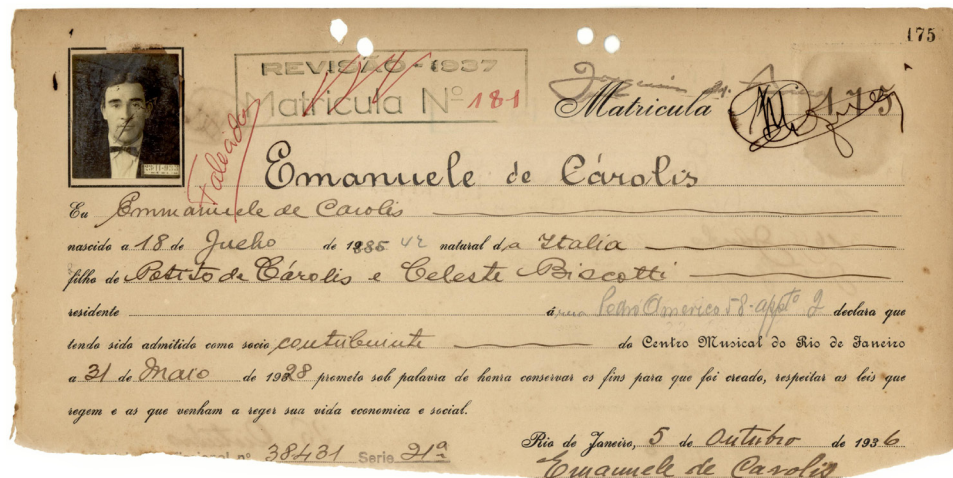 175
REVISÃO - 1937
Matricula Nº 181
Matricula 175
Falecido
Emanuele de Cárolis
Eu Emmanuele de Carolis
nascido a 18 de Julho de 1885 42 natural da Italia
filho de Potito de Cárolis e Celeste Biscotti
residente á rua Pedro Americo 58-appto 2 declara que
tendo sido admitido como socio contribuinte do Centro Musical do Rio de Janeiro
a 31 de Maio de 1928 prometo sob palavra de honra conservar os fins para que foi creado, respeitar as leis que
regem e as que venham a reger sua vida economica e social.
Rio de Janeiro, 5 de Outubro de 1936
nº 38431 Serie 21ª
Emanuele de Carolis